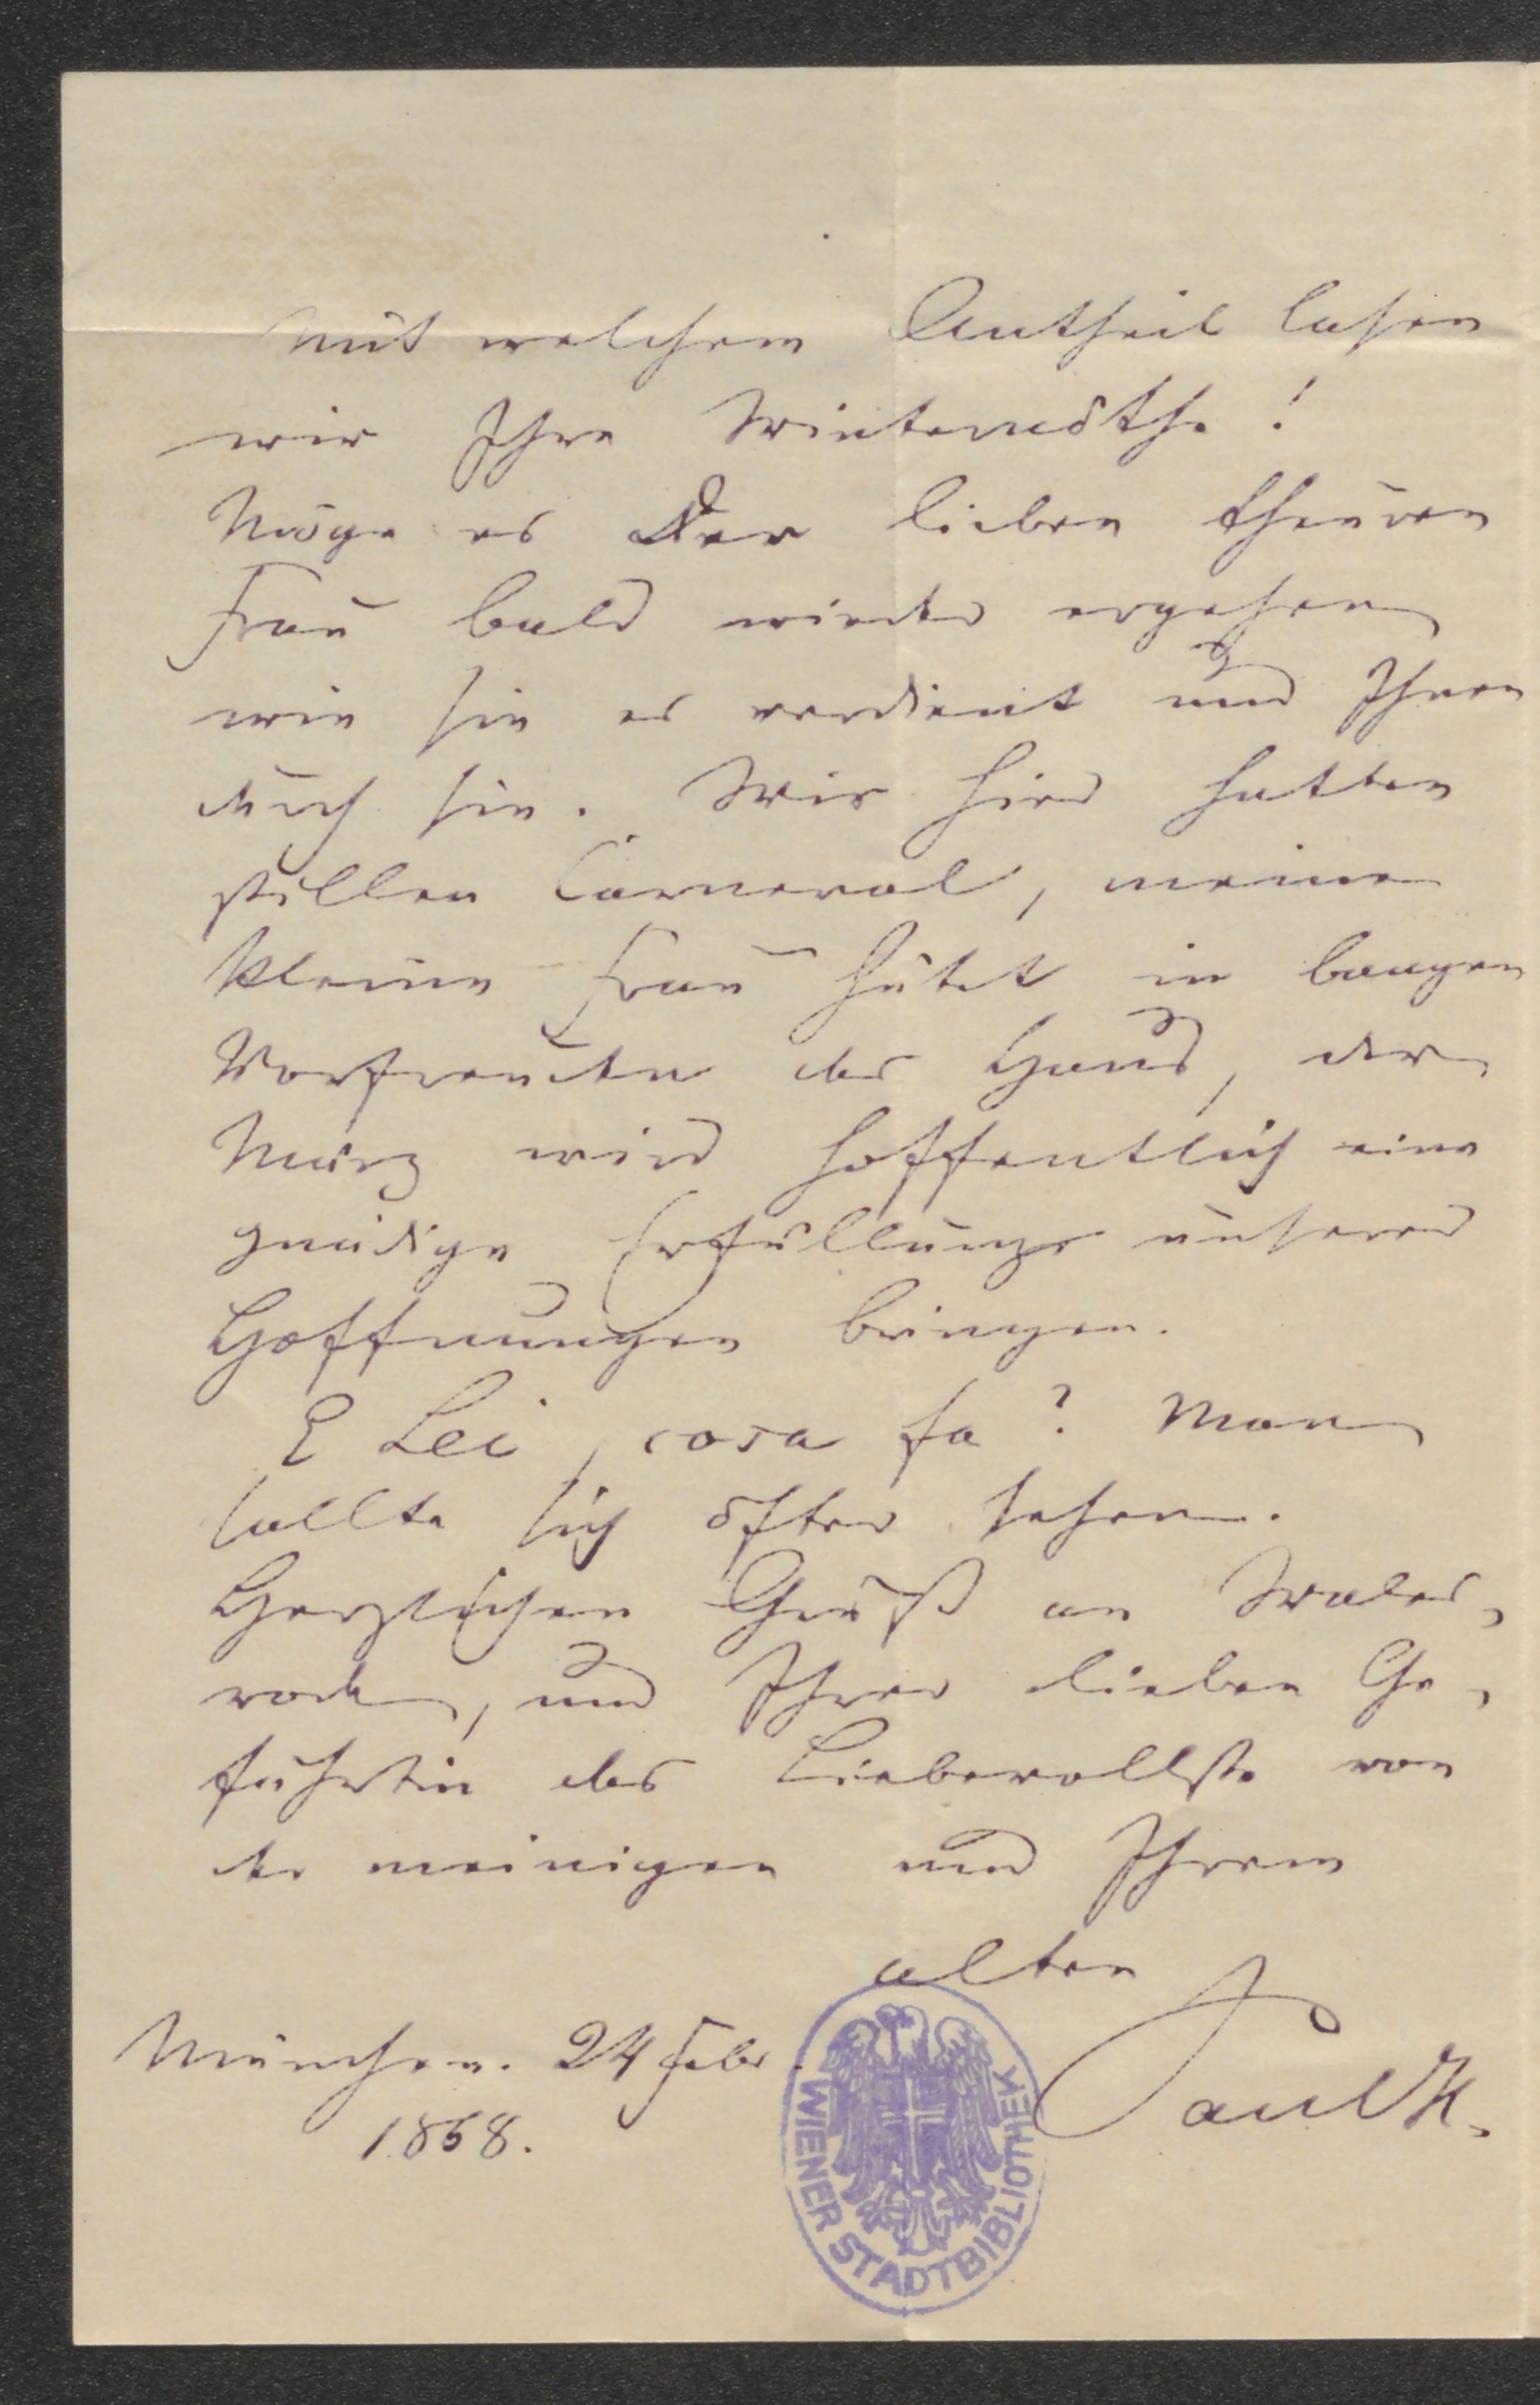 Mit welchem Antheil lasen
wir Ihre Winternöthe!
Möge es der lieben theuren
Frau bald wieder ergehen
wie sie es verdient und Ihnen
durch sie. Wir hier hatten
stillen Carneval, meine
kleine Frau hütet in bangen
Vorfreuden das Haus, der
März wird hoffentlich eine
gnädige Erfüllung unserer
Hoffnungen bringen.
E Lei, cosa fa? Man
sollte sich öfter sehen.
Herzlichen Gruß an Wales,
rode, und Ihrer lieben Ge,
fährtin das Liebevollste von
der meinigen und Ihrem
alten
München. 24 Febr.
1868.
Paul H.
WIENER STADTBIBLIOTHEK